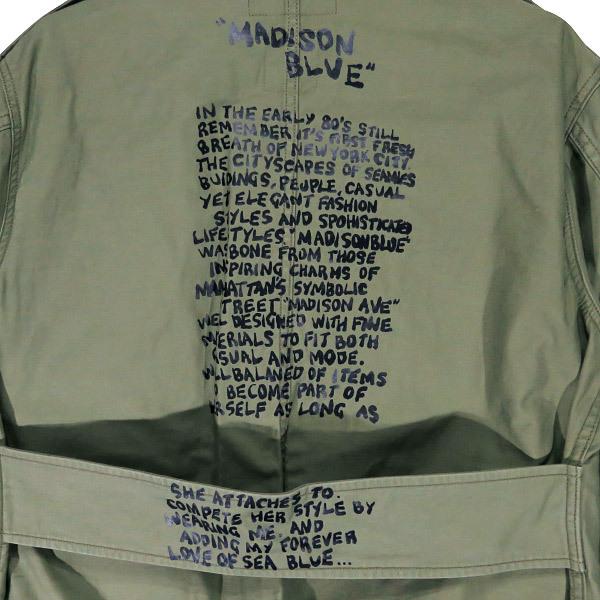 "MADISON
BLUE"
IN THE EARLY 80'S STILL
REMEMBER IT'S FIRST FRESH
BREATH OF NEW YORK CITY
THE CITYSCAPES OF SEAMLES
BUIDINGS, PEUPLE, CASUAL
YET ELEGANT FASHION
STYLES AND SPOHISTICATED
LIFETYLES. "MADISONBLUE"
WAS BONE FROM THOSE
INPIRING CHARMS OF
MANHATTAN'S SYMBOLIC
TREET "MADISON AVE"
WEL DESIGNED WITH FINE
MERIALS TO FIT BOTH
SUAL AND MODE.
BALANED OF ITEMS
BECOME PART OF
RSELF AS LONG AS
SHE ATTACHES TO.
COMPETE HER STYLE BY
WEARING ME, AND
ADDING MY FOREVER
LOVE OF SEA BLUE...